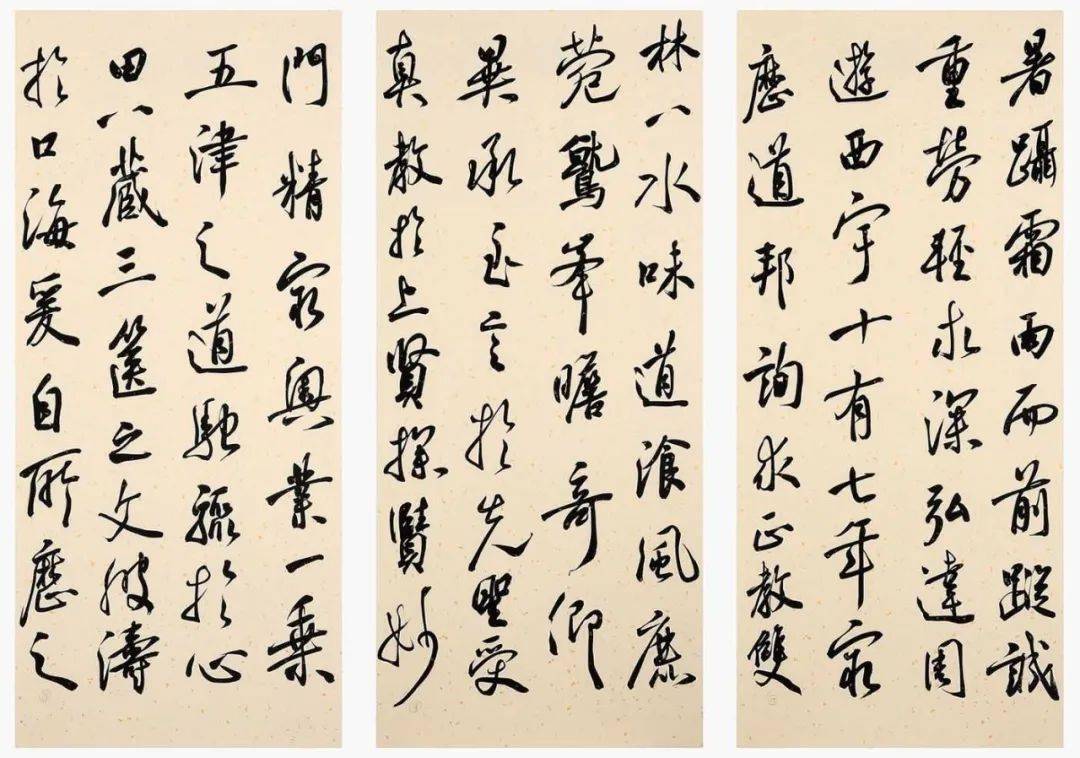 暑躡霜雨而前蹤誠
重勞輕求深弘達周
遊西宇十有七年窮
歷道邦詢求正教雙
林八水味道飡風鹿
菀鷲峯瞻奇仰
異承至言於先聖受
真教於上賢探賾妙
門精窮奧業一乘
五津之道馳驟於心
田八藏三篋之文波濤
於口海爰自所歷之